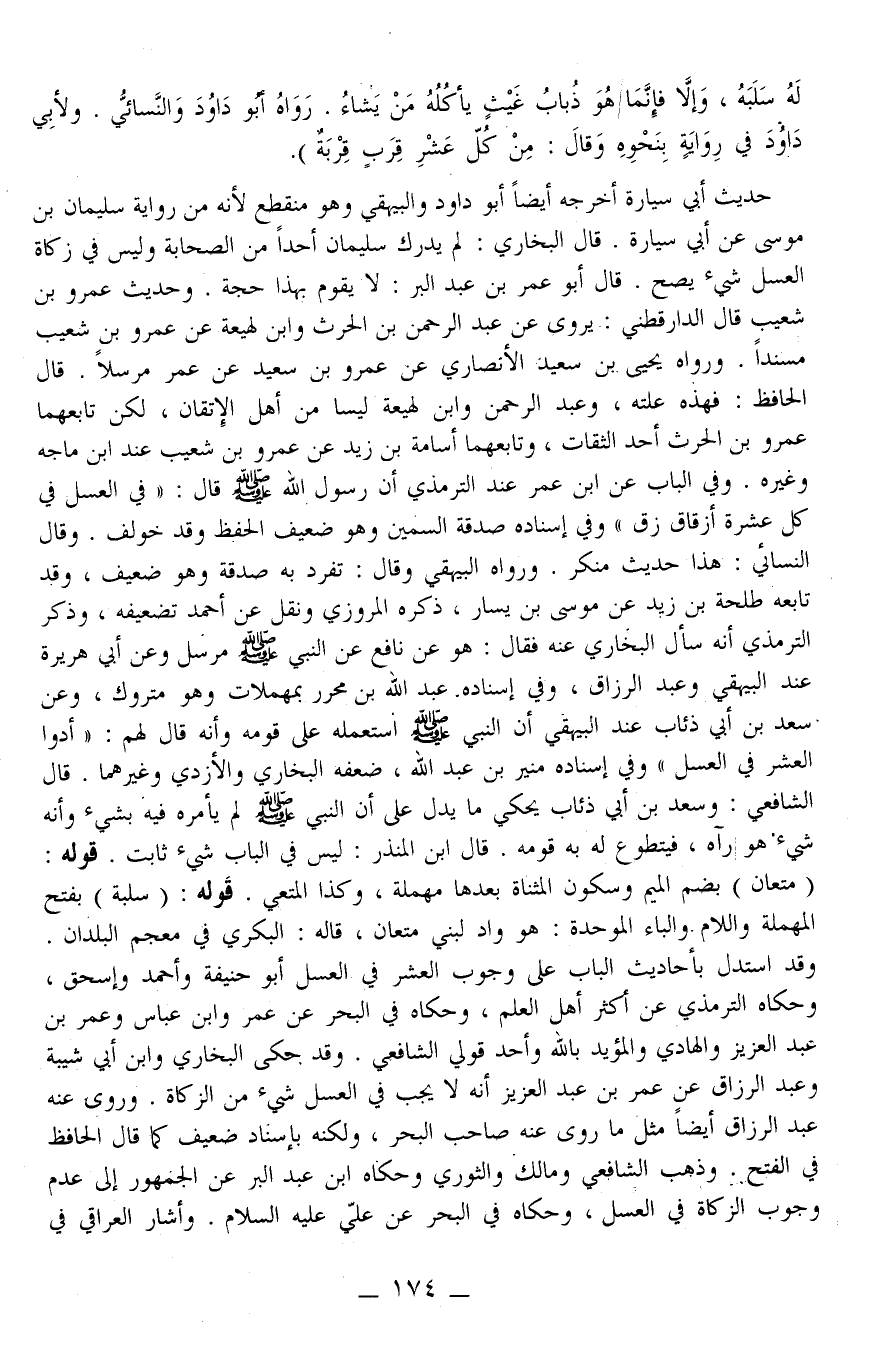 لَهُ سَلَبَهُ ، وَإلَّا فإِنَّمَا هُوَ ذُبابُ غَيْثٍ يأكُلُهُ مَنْ يَشاءُ . رَوَاهُ أبُو دَاوُدَ وَالنَّسائيُّ . ولأبِي
دَاوُدَ في رِوَايَةٍ بِنَحْوِهِ وَقالَ : مِنْ كُلّ عَشْرِ قِرَبٍ قِرْبَةٌ ).
حديث أبي سيارة أخرجه أيضاً أبو داود والبيهقي وهو منقطع لأنه من رواية سليمان بن
موسى عن أبي سيارة . قال البخاري : لم يدرك سليمان أحداً من الصحابة وليس في زكاة
العسل شيء يصح . قال أبو عمر بن عبد البر : لا يقوم بهذا حجة . وحديث عمرو بن
شعيب قال الدارقطني : يروى عن عبد الرحمن بن الحرث وابن لهيعة عن عمرو بن شعيب
مسنداً . ورواه يحيى بن سعيد الأنصاري عن عمرو بن سعيد عن عمر مرسلاً . قال
الحافظ : فهذه علته ، وعبد الرحمن وابن لهيعة ليسا من أهل الإتقان ، لكن تابعهما
عمرو بن الحرث أحد الثقات ، وتابعهما أسامة بن زيد عن عمرو بن شعيب عند ابن ماجه
وغيره . وفي الباب عن ابن عمر عند الترمذي أن رسول الله ﷺ قال : « في العسل في
كل عشرة أزقاق زق » وفي إسناده صدقة السمين وهو ضعيف الحفظ وقد خولف . وقال
النسائي : هذا حديث منكر . ورواه البيهقي وقال : تفرد به صدقة وهو ضعيف ، وقد
تابعه طلحة بن زيد عن موسى بن يسار ، ذكره المروزي ونقل عن أحمد تضعيفه ، وذكر
الترمذي أنه سأل البخاري عنه فقال : هو عن نافع عن النبي ﷺ مرسل وعن أبي هريرة
عند البيهقي وعبد الرزاق ، وفي إسناده عبد الله بن محرر بمهملات وهو متروك ، وعن
سعد بن أبي ذئاب عند البيهقي أن النبي ﷺ استعمله على قومه وأنه قال لهم : « أدوا
العشر في العسل » وفي إسناده منير بن عبد الله ، ضعفه البخاري والأزدي وغيرهما . قال
الشافعي : وسعد بن أبي ذئاب يحكي ما يدل على أن النبي ﷺ لم يأمره فيه بشيء وأنه
شيء هو رآه ، فيتطوع له به قومه . قال ابن المنذر : ليس في الباب شيء ثابت . قوله :
( متعان ) بضم الميم وسكون المثناة بعدها مهملة ، وكذا المتعي . قَوله : ( سلبة ) بفتح
المهملة واللام والباء الموحدة : هو واد لبني متعان ، قاله : البكري في معجم البلدان .
وقد استدل بأحاديث الباب على وجوب العشر في العسل أبو حنيفة وأحمد وإسحق ،
وحكاه الترمذي عن أكثر أهل العلم ، وحكاه في البحر عن عمر وابن عباس وعمر بن
عبد العزيز والهادي والمؤيد بالله وأحد قولي الشافعي . وقد حكى البخاري وابن أبي شيبة
وعبد الرزاق عن عمر بن عبد العزيز أنه لا يجب في العسل شيء من الزكاة . وروى عنه
عبد الرزاق أيضاً مثل ما روى عنه صاحب البحر ، ولكنه بإسناد ضعيف كما قال الحافظ
في الفتح . وذهب الشافعي ومالك والثوري وحكاه ابن عبد البر عن الجمهور إلى عدم
وجوب الزكاة في العسل ، وحكاه في البحر عن عليّ عليه السلام . وأشار العراقي في
— ١٧٤ —